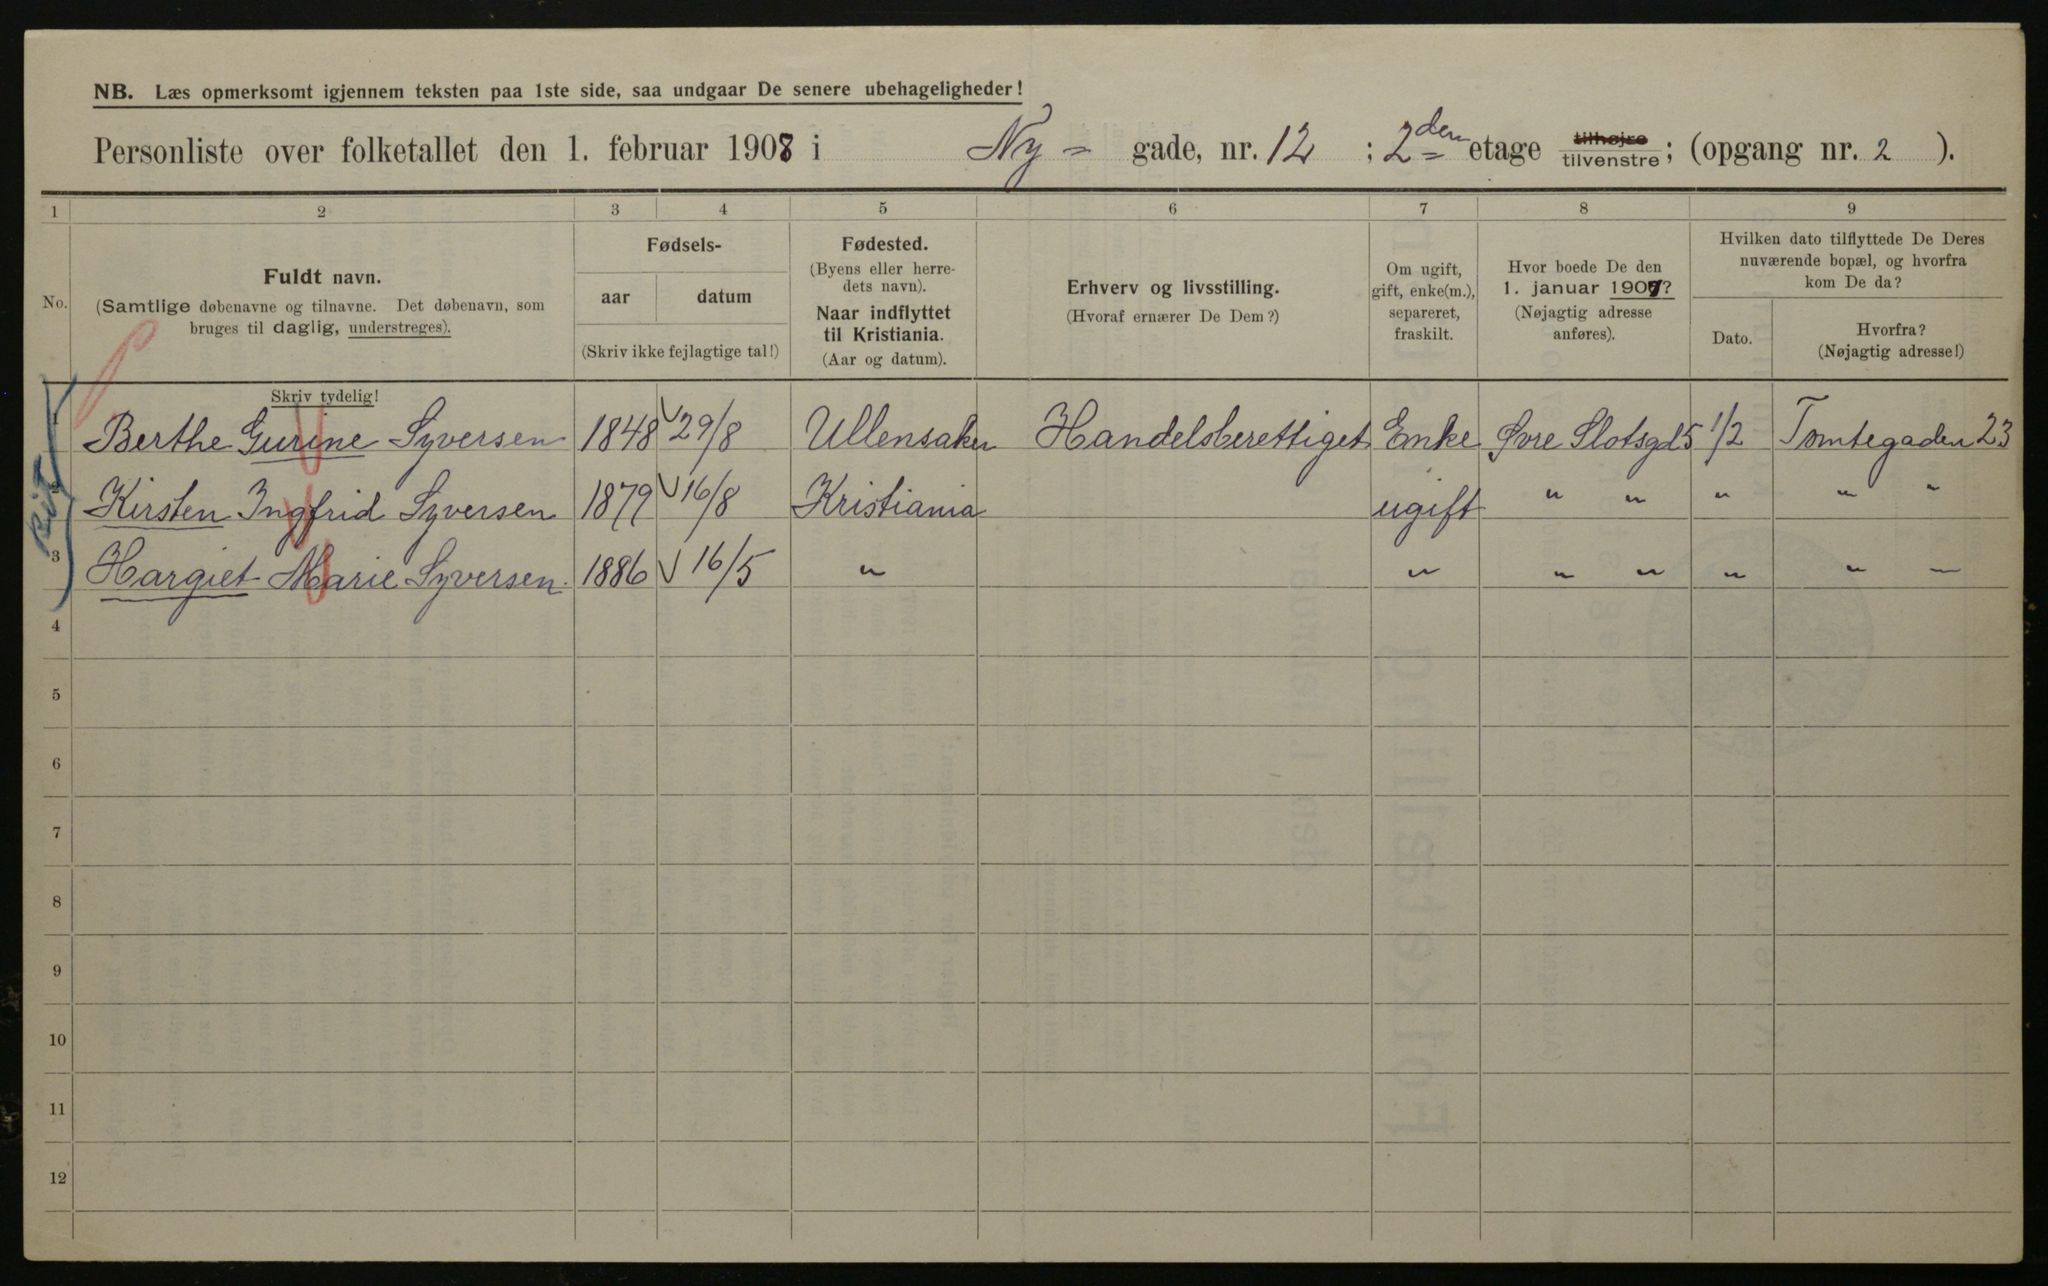 NB. Læs opmerksomt igjennem teksten paa 1ste side, saa undgaar De senere ubehageligheder!
Personliste over folketallet den 1. februar 1908 i Ny - gade, nr. 12 ; 2den etage tilhøjre tilvenstre; (opgang nr. 2 ).
1 2 3 4 5 6 7 8 9
No.
Fuldt navn.
(Samtlige døbenavne og tilnavne. Det døbenavn, som
bruges til daglig, understreges).
Skriv tydelig!
Fødsels-
aar datum
(Skriv ikke fejlagtige tal!)
Fødested.
(Byens eller herre-
dets navn).
Naar indflyttet
til Kristiania.
(Aar og datum).
Erhverv og livsstilling.
(Hvoraf ernærer De Dem?)
Om ugift,
gift, enke(m.),
separeret,
fraskilt.
Hvor boede De den
1. januar 1907?
(Nøjagtig adresse
anføres).
Hvilken dato tilflyttede De Deres
nuværende bopæl, og hvorfra
kom De da?
Dato.
Hvorfra?
(Nøjagtig adresse!)
1 Berthe Gurine Syversen 1848 29/8 Ullensaker Handelsberettiget Enke Øvre Slotsgd 5 1/2 Tomtegaden 23
2 Kirsten Ingfrid Syversen 1879 16/8 Kristiania ugift " " " " "
3 Hargiet Marie Syversen. 1886 16/5 " " " " " " "
4
5
6
7
8
9
10
11
12